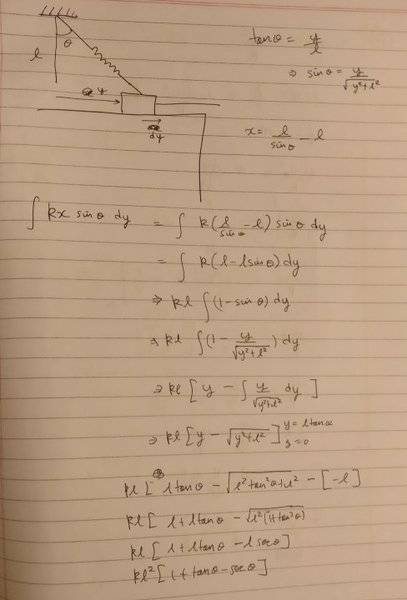 l θ
y
dy
tanθ = y/l
⇒ sinθ = y/√(y²+l²)
x = l/sinθ - l
∫ kx sinθ dy = ∫ k(l/sinθ - l) sinθ dy
= ∫ k(l - l sinθ) dy
⇒ kl ∫(1 - sinθ) dy
⇒ kl ∫(1 - y/√(y²+l²)) dy
⇒ kl [y - ∫ y/√(y²+l²) dy]
⇒ kl [y - √(y²+l²)] y = l tanθ y = 0
kl [l tanθ - √(l² tan²θ + l²) - [-l]
kl [l + l tanθ - √(l²(1+tan²θ))
kl [l + l tanθ - l secθ]
kl² [1 + tanθ - secθ]